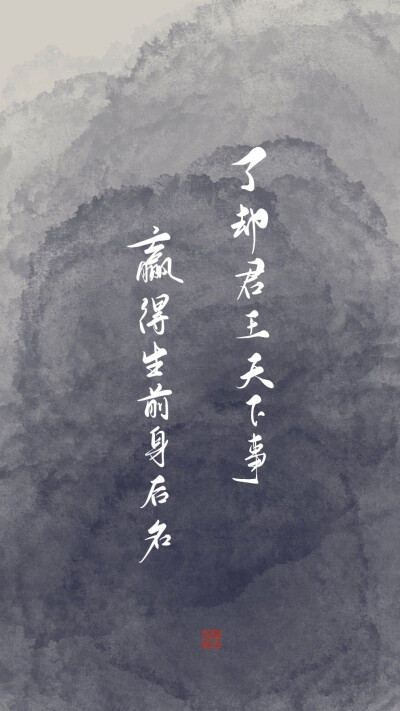 了却君王天下事
赢得生前身后名